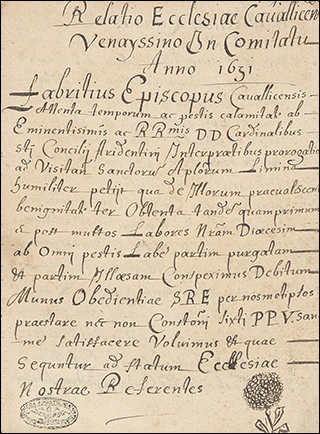 Relatio Ecclesiae Cavallicen
Venayssino In Comitatu
Anno 1631
Fabritius Episcopus Cavallicensis
Attenta temporum ac pestis calamitate ab
Eminentisimis ac RRmis DD Cardinalibus
sti Concilij tridentini Interpratibus prorogatio
ad Visitan Sanctorum Aplorum Limina
humiliter petijt qua de Illorum praevalescen
benignitate ter Obtenta tandem quamprimum
e post multos Labores Nram Dioecesim
ab Omni pestis Labe partim purgatam
et partim Illaesam Conspeximus Debitum
Munus Obedientiae SRE per nosmetipsos
praestare nec non Constoni Sixti PPV san
me satisfacere Voluimus et quae
Sequntur ad statum Ecclesiae
Nostrae Referentes